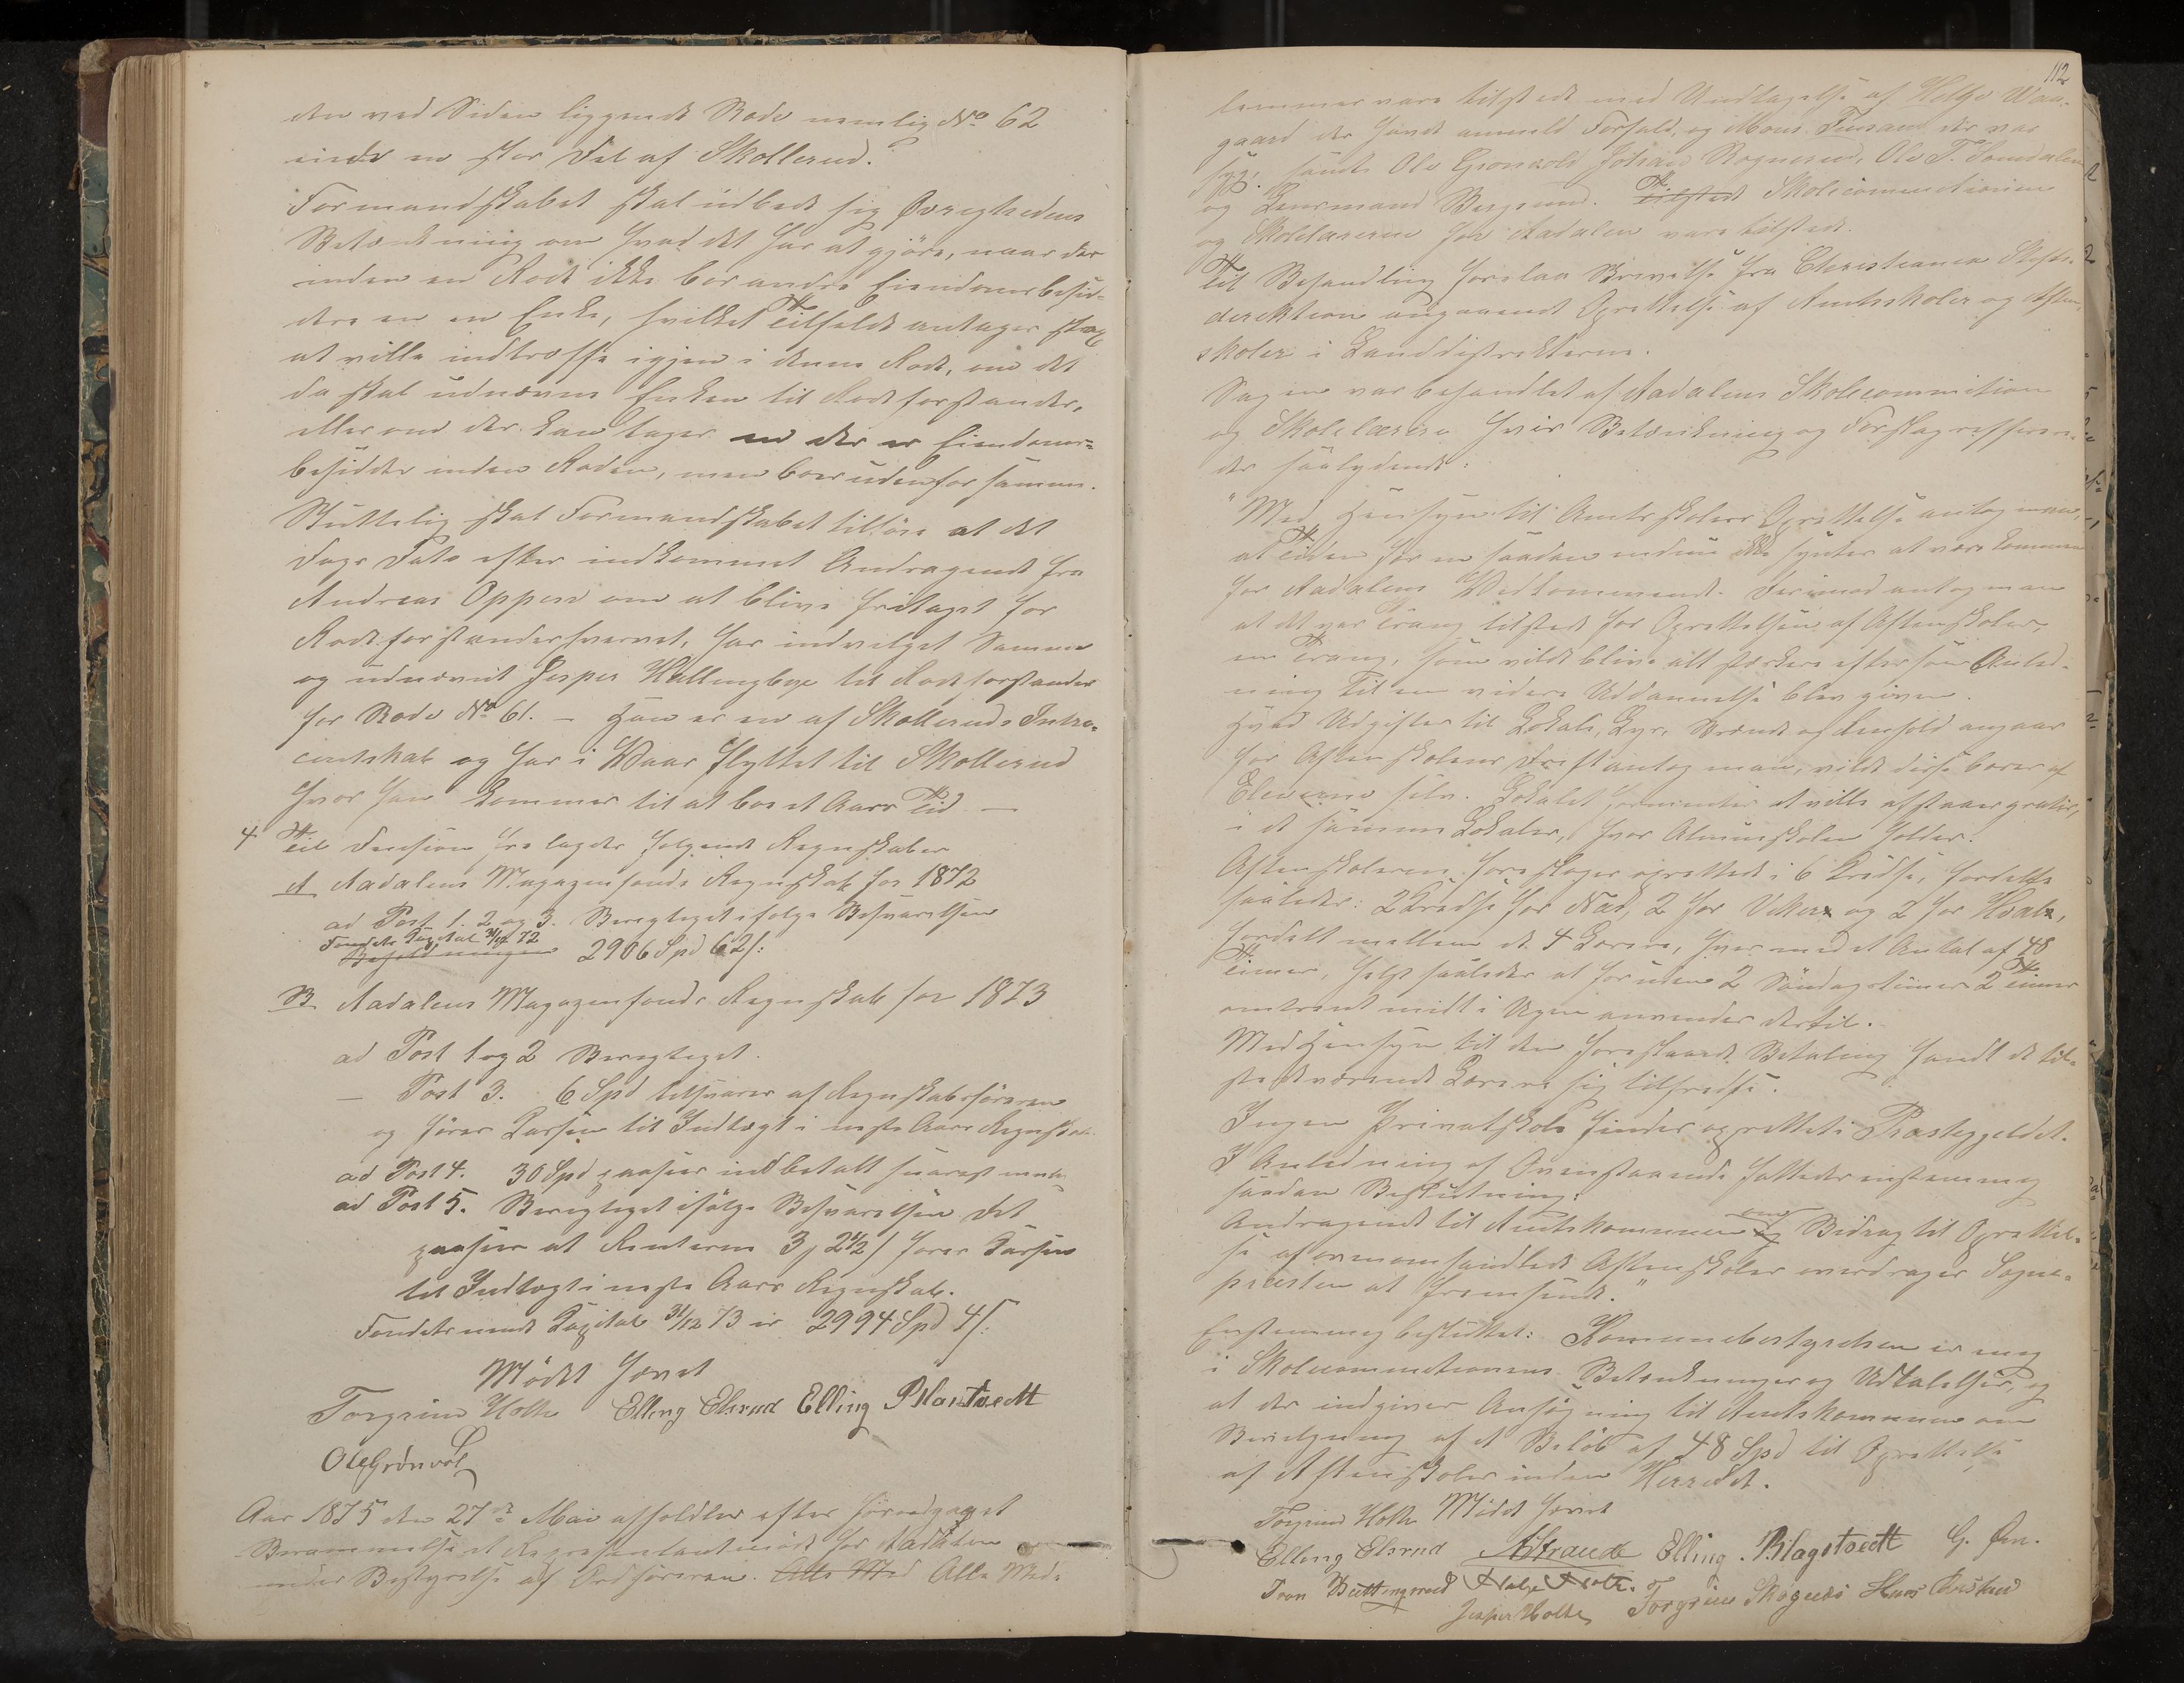 den ved Siden liggende Rode nemlig No 62
eier en stor Del af Skollerud.
Formandskabet skal udbede sig Øvrighedens
Betænkning om hvad det har at gjöre, naar der
inden en Rode ikke bor andre Eiendomsbesid-
dere en en Enke, hvilket Tilfælde antages strax
at ville indtræffe igjen i denne Rode, om det
da skal udnævne Enken til Rodeforstander,
eller om der kan tages en der er Eiendoms-
besidder inden Roden, men boer udenfor samme.
Sluttelig skal Formandskabet tilföie at det
Dags Dato efter indkommet Andragende fra
Andreas Oppen om at blive fritaget for
Rodeforstanderhvervet, har indvilget Samme
og udnævnt Jesper Hallingbye til Rodeforstander
for Rode No 61. – Han er en af Skolleruds Intres-
centskab og har i Vaar flyttet til Skollerud
hvor han kommer til at bo et Aars Tid –
4 Til Decision fralagdes fölgende Regnskaber
A Aadalens Magazinfonds Regnskab for 1872
ad Post 1. 2 og 3. Berigtiget ifölge Besvarelsen
Fondets Kapital 31/12 72
Beholdningen 2906 Spd 62 s:
B Aadalens Magazinfonds Regnskab for 1873
ad Post 1 og 2 Berigtiget.
– Post 3. 6 Spd tilsvares af Regnskabsföreren
og föres Kassen til Indtægt i neste Aars Regnskab.
ad Post 4. 30 Spd paasees indbetalt snarest muligt
ad Post 5. Berigtiget ifölge Besvarelsen det
paasees at Renterne 3 s 2 1/2 s föres Kassen
til Indtægt i neste Aars Regnskab.
Fondets Kapital 31/12 73 er 2994 Spd 4 s:
Mödet hævet
Torgrim Holte Elling Elsrud Elling P. Blagstvedt
Ole Grönvol
Aar 1875 den 27de Mai afholdtes efter foregaaet
Berammelse et Repræsentantmöde for Aadalen
under Bestyrelse af Ordföreren. Alle Med Alle Med-
112
lemmer vare tilstede med Undtagelse af Helge Waa-
gaard der havde anmeldt Forfald, og Mons der var
syg, samt Ole Gronvold Johan Rognerud, Ole T. Somdalen
og Lensmand Bergsund. Tilstede Skolecommitionen
og Skolelærerne for Aadalen vare tilstede.
Til Behandling forelaa Skrivelse fra Christiania Stifts-
direktion angaaende Oprettelse af Amtsskoler og Aften-
skoler i Landdistrikterne.
Sagen var behandlet af Aadalens Skolecommition
og Skolelærere hvis Betænkning og Forslag refferere-
des saalydende:
"Med Hensyn til Amtsskolers Oprettelse antog man,
at Tiden for en saadan endnu ikke synes at være kommen
for Aadalens Vedkommende. Derimod antog man
at det var Trang tilstede for Oprettelsen af Aftenskoler,
en Trang, som vilde blive alt stærkere eftersom Anled-
ning til en videre Uddannelse blev given.
Hvad Udgifter til Lokale, Lys, Brænde og Renhold angaar
for Aftenskolens Drift antog man, vilde disse bæres af
Eleverne selv. Lokalet formentes at ville afstaaes gratis,
i de samme Lokaler, hvor Almueskolen holdes.
Aftenskolerne foreslaaes oprettede i 6 Kredse, fordelte
saaledes: 2 Kredse for Næs, 2 for Viker og 2 for Hval,
fordelt mellem de 4 Lærere, hver med et Antal af 48
Timer, helst saaledes at foruden 2 Söndagstimer 2 Timer
omtrent midt i Ugen anvendes dertil.
Med Hensyn til den foreslaaede Betaling fandt de til-
stedeværende Lærere sig tilfredse.
Ingen Privatskole findes oprettet i Præstegjeldet.
I Anledning af Ovenstaaende fattedes enstemmig
saadan Beslutning:
Andragende til Amtskommunen om Bidrag til Oprettel-
se af ovenomhandlede Aftenskoler overdrages Sogne-
præsten at fremsende."
Enstemmig besluttet: Kommunebestyrelsen er enig
i Skolecommitionens Betænkninger og Udtalelser, og
at der indgives Ansögning til Amtskommunen om
Bevilgning af et Belöb af 48 Spd til Oprettelse
af Aftenskoler inden Herredet.
Mödet hævet
Torgrim Holte
Elling Elsrud A. Strande Elling P. Blagstvedt G. Øen.
Iver Buttingsrud Helge Holte. Torgrim Skagnæs Hans
Jesper Holte